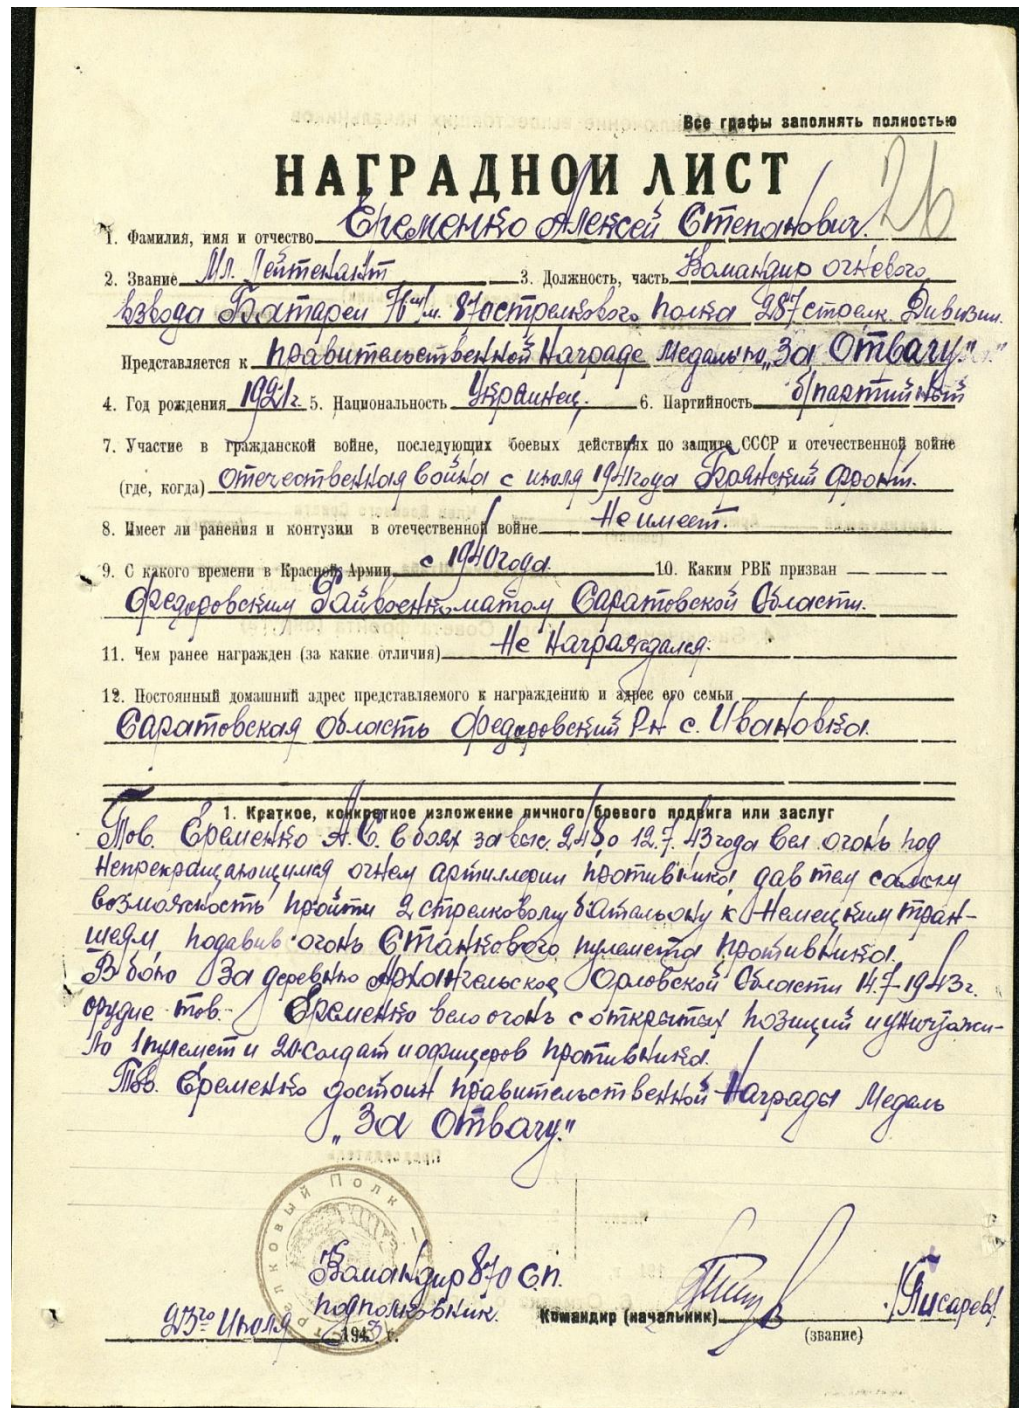 Все графы заполнять полностью
26
НАГРАДНОЙ ЛИСТ
1. Фамилия, имя и отчество Еременко Алексей Степанович.
2. Звание Мл. Лейтенант 3. Должность, часть Командир огневого
взвода Батареи 76 м/м. 870 стрелкового полка 287 стрелк. Дивизии.
Представляется к правительственной Награде Медалью „За Отвагу."
4. Год рождения 1921 г. 5. Национальность Украинец. 6. Партийность б/партийный
7. Участие в гражданской войне, последующих боевых действиях по защите СССР и отечественной войне
(где, когда) Отечественная война с июля 1941 года Брянский Фронт.
8. Имеет ли ранения и контузии в отечественной войне Не имеет.
9. С какого времени в Красной Армии с 1940 года. 10. Каким РВК призван
Федоровским Райвоенкоматом Саратовской Области.
11. Чем ранее награжден (за какие отличия) Не Награждался.
12. Постоянный домашний адрес представляемого к награждению и адрес его семьи
Саратовская область Федоровский Р-н с. Ивановка.
1. Краткое, конкретное изложение личного боевого подвига или заслуг
Тов. Еременко А.С. в боях за выс. 12.7.43 года вел огонь под
непрекращающимся огнем артиллерии противника, дав тем самым
возможность пройти 2 стрелковому батальону к Немецким тран-
шеям, подавив огонь Станкового пулемета противника.
В бою За деревню Архангельское Орловской Области 14.7-1943 г.
орудие тов. Еременко вело огонь с открытых позиций и уничтожи-
ло 1 пулемет и 20 солдат и офицеров противника.
Тов. Еременко достоин правительственной Награды Медаль
„За Отвагу."
Стрелковый Полк
Командир 870 С.П.
подполковник.
Командир (начальник) /Писарев/
(звание)
23го Июля 1943 г.